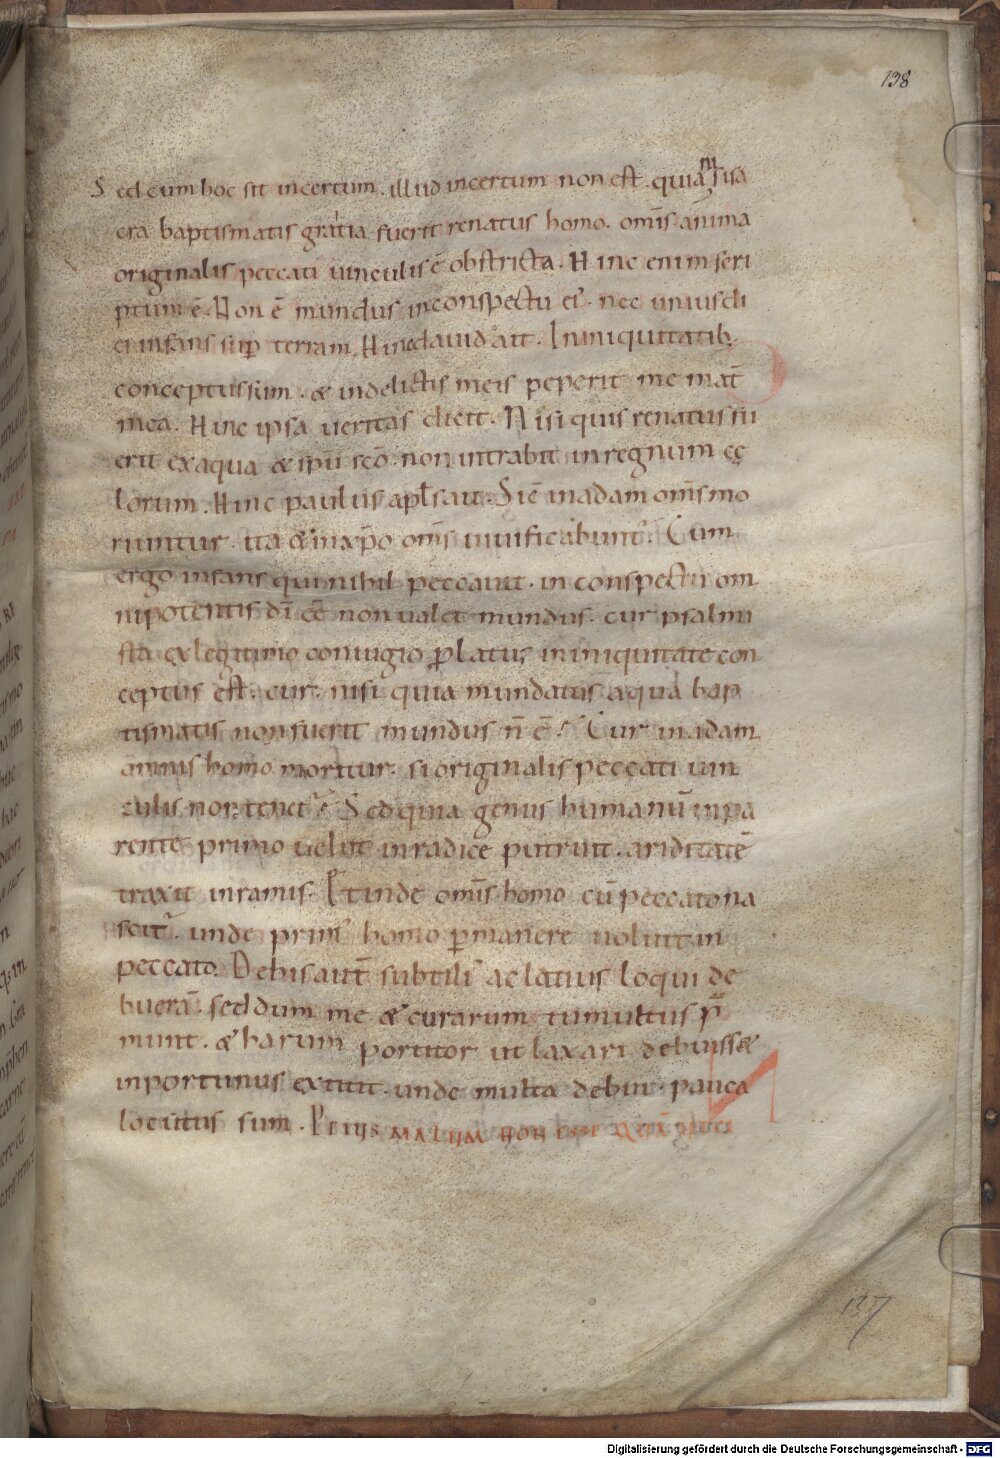 138
Sed cum hoc sit incertum. illud incertum non est. quia nisi sa
cra baptismatis gratia fuerit renatus homo. omīs anima
originalis peccati uinculis ē obstricta. Hinc enim scri
ptum ē. Non ē mundus inconspectu ei'. nec unius diei
infans sup terram. Hinc dauid ait. Ininiquitatib;
conceptus sum. & indelictis meis peperit me mat̄
mea. Hinc ipsa ueritas dicit. Nisi quis renatus fu
erit exaqua & spū scō. non intrabit inregnum cę
lorum. Hinc paulus apls ait. Sic inadam omīs mo
riuntur. ita & inxpō omīs uiuificabunt'. Cum
ergo infans qui nihil peccauit. in conspectu om
nipotentis dī ēē non ualet mundus. cur psalmi
sta exlegitimo coniugio platus, in iniquitate con
ceptus est. cur. nisi quia mundatus aqua bap
tismatis non fuerit mundus n̄ ē? Cur inadam
omnis homo moritur. si originalis peccati uin
culis non tenet'? Sed quia genus humanū inpa
rente primo uelut inradice putruit. ariditatē
traxit inramis. Et inde omīs homo cū peccato na
scit'. unde prim' homo pmanere uoluit in
peccato. De his aut̄ subtili' ac latius loqui de
buerā. sed dum me & curarum tumultus p̄
munt. & harum portitor ut laxari debuisse
inportunus extitit. unde multa debui. pauca
locutus sum.
137
Digitalisierung gefördert durch die Deutsche Forschungsgemeinschaft - DFG